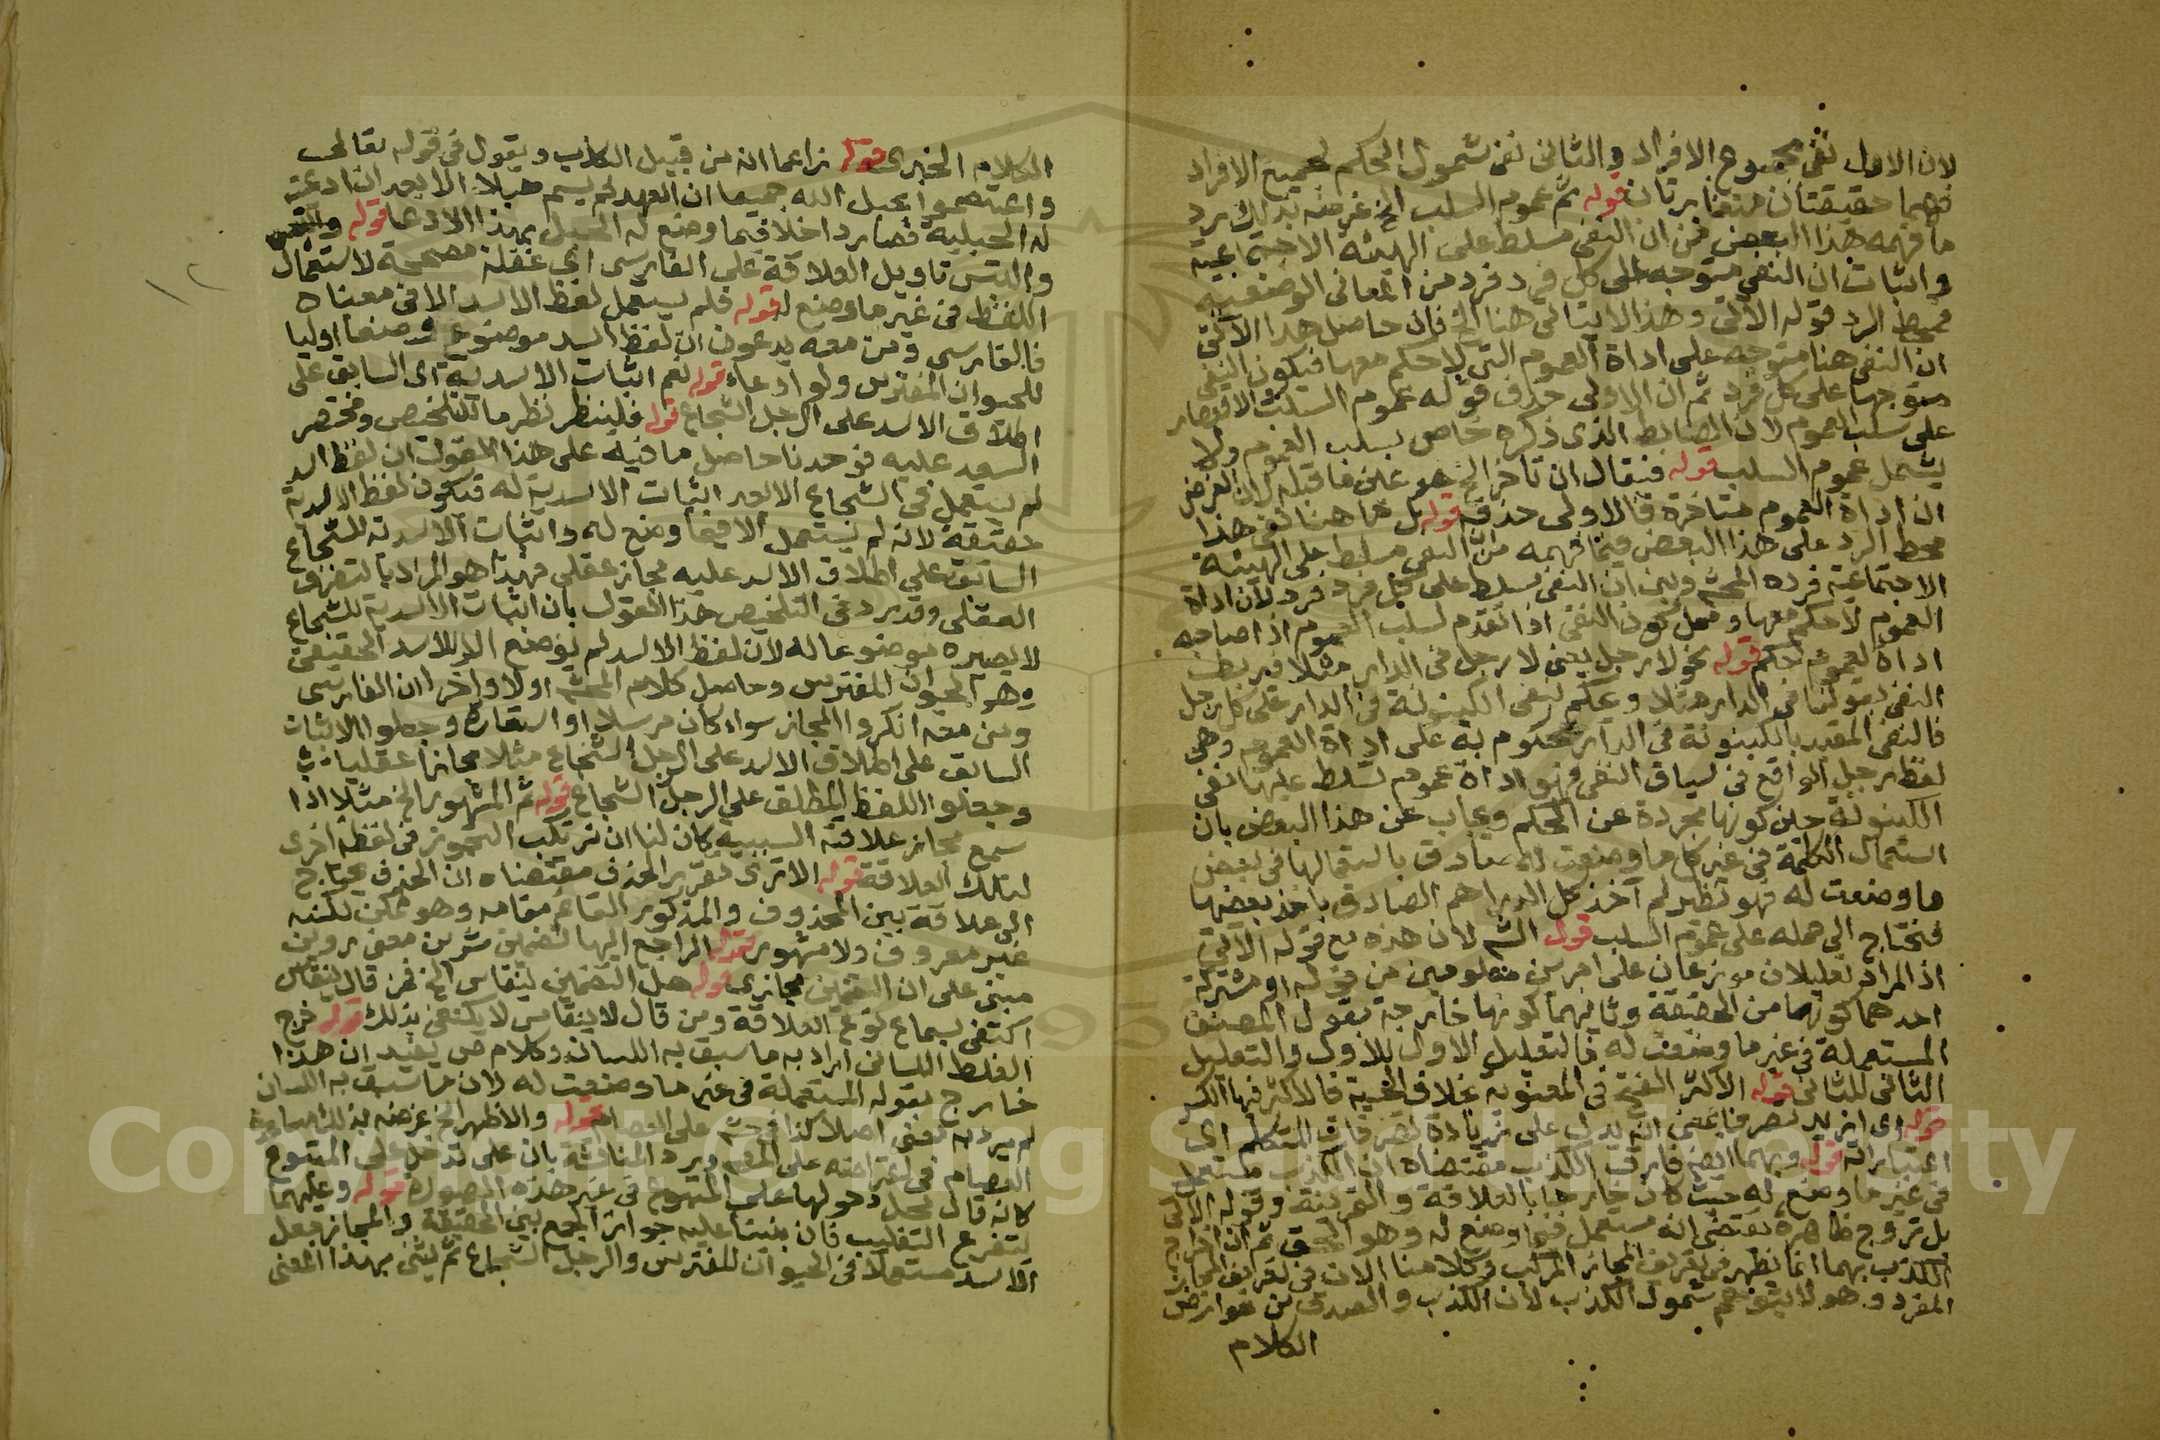 لان الاول نفى مجموع الافراد والثانى نفى شمول الحكم لجميع الافراد
فهما حقيقتان متغايرتان قوله ثم عموم السلب الخ غرضه بذلك رد
ما فهمه هذا البعض من ان النفى مسلط على الهيئة الاجتماعية
واثبات ان النفى متوجه الى كل فرد فرد من المعانى الوضعية
فمحط الرد قوله الآتى وهذا لا يتاتى هنا الخ فان حاصل هذا الآتى
ان النفى هنا متوجه على اداة العموم التى لا حكم معها فيكون النفى
متوجها على كل فرد ثم ان الاولى حذف قوله عموم السلب لاقتصار
على سلب العموم لان الضابط الذى ذكره خاص بسلب العموم ولا
يشمل عموم السلب قوله فنقال ان تاخر الخ هو عين ما قبله لان الغرض
ان اداة العموم متاخرة فالاولى حذفه قوله بل ما هنا نفى هذا
محط الرد على هذا البعض فيما فهمه من ان النفى مسلط على الهيئة
الاجتماعية فرده المحشى وبين ان النفى مسلط على كل فرد فرد لان اداة
العموم لا حكم معها ومحل كون النفى اذا تقدم لسلب العموم اذا صاحبه
اداة العموم حكم قوله نحو لا رجل يعنى لا رجل فى الدار مثلا فيربط
النفى بقولنا فى الدار مثلا وحكم لنفى الكينونة فى الدار على كل رجل
فالنفى المقيد بالكينونة فى الدار محكوم به على اداة العموم وهى
لفظ رجل الواقع فى سياق النفى فهو اداة عموم تسلط عليها نفى
الكينونة حين كونها مجردة عن الحكم ويجاب عن هذا البعض بان
استعمال الكلمة فى غير كل ما وضعت له صادق باستعمالها فى بعض
ما وضعت له فهو نظير لم آخذ كل الدراهم الصادق باخذ بعضها
فنحتاج الى حمله على عموم السلب قوله الشم لان هذه مع قوله الآتى
اذ المراد تعليلان موزعان على امرين معلومين من قوله او مشتركة
احدهما كونهما من الحقيقة وثانيهما كونها خارجة بقول المصنف
المستعملة فى غير ما وضعت له فالتعليل الاول للاول والتعليل
الثانى للثانى قوله الاكثر الفتح فى المعنوية بخلاف الحسية فالاكثر فيها الكسر
قوله اى ازيد تصرفا بمعنى انه يدل على زيادة تصرفات المتكلم اى
اعتباراته قوله وبهما ايضا فارق الكذب مقتضاه ان الكذب مستعمل
فى غير ما وضع له حيث كان خارجا بالعلاقة والقرينة وقوله الآتى
بل تروج ظاهره يقتضى انه مستعمل فيما وضع له وهو الحق ثم ان اخراج
الكذب بهما انما نظهر فى تعريف المجاز المركب وكلامنا الان فى تعريف المجاز
المفرد وهو لا يتوهم شمول الكذب لان الكذب والصدق من عوارض
الكلام
الكلام الخبرى قوله زاعما انه من قبيل الكذب ويقول فى قوله تعالى
واعتصموا بحبل الله جميعا ان العهد لم يسم حبلا الا بعد ان ادعيت
له الحبلية فصار داخلا فيما وضع له الحبل بهذا الادعا قوله والتبس
والتبس تاويل العلاقة على الفارسى اى غفلة مصححة لاستعمال
اللفظ فى غير ما وضع له قوله فلم يستعمل لفظ الاسد الا فى معناه
فالفارسى ومن معه يدعون ان لفظ اسد موضوع وضعا اوليا
للحيوان المفترس ولو ادعاء قوله نعم اثبات الاسدية اى السابق على
اطلاق الاسد على الرجل الشجاع قوله فلينظر نظرما التلخيص ومختصر
السعد عليه فوجدنا حاصل ما فيه على هذا القول ان لفظ اسد
لم يستعمل فى الشجاع الا بعد اثبات الاسدية له فتكون لفظ الاسدية
حقيقة لانه لم يستعمل الا فيما وضع له واثبات الاسدية للشجاع
السابق على اطلاق الاسد عليه مجاز عقلى فهذا هو المراد بالتصرف
العقلى وقد رد فى التلخيص هذا القول بان اثبات الاسدية للشجاع
لا يصيره موضوعا له لان لفظ الاسد لم يوضع الا للاسد الحقيقى
وهو الحيوان المفترس وحاصل كلام المحشى اولا واخرا ان الفارسى
ومن معه انكروا المجاز سواء كان مرسلا او استعارة وجعلوا الاثبات
السابق على اطلاق الاسد على الرجل الشجاع مثلا مجازا عقليا
وجعلوا اللفظ المطلق على الرجل الشجاع قوله ثم المشهور الخ مثلا اذا
سمع مجاز علاقته السببية كان لنا ان نرتكب التجوز فى لفظة اخرى
لتلك العلاقة قوله الا ترى تقرير الحذف مقتضاه ان الحذف يحتاج
الى علاقة بين المحذوف والمذكور القائم مقامه وهو ممكن لكنه
غير معروف ولا مشهور قوله الراجع اليها تضمين شربن معنى روين
مبنى على ان التضمين مجازى قوله هل التضمين ينقاس الخ فمن قال ينقاس
اكتفى بسماع نوع العلاقة ومن قال لا ينقاس لا يكتفى بذلك قوله خرج
الغلط اللسانى اراد به ما سبق به اللسان وكلام ص يفيد ان هذا
خارج بقوله المستعملة فى غير ما وضعت له لان ما سبق به اللسان
لم يرد به معنى اصلا كذا على العصام قوله والاظهر الخ غرضه بذلك
العصام فى اعتراضه على المصنف ويرد المناقشة بان على تدخل على المتبوع
كانه قال محل دخولها على المتبوع فى غير هذه الصورة قوله وعليهما
يتفرع التغليب فان بنينا عليه جواز الجمع بين الحقيقة والمجاز جعل
الاسد مستعملا فى الحيوان المفترس والرجل الشجاع ثم يثنى بهذا المعنى